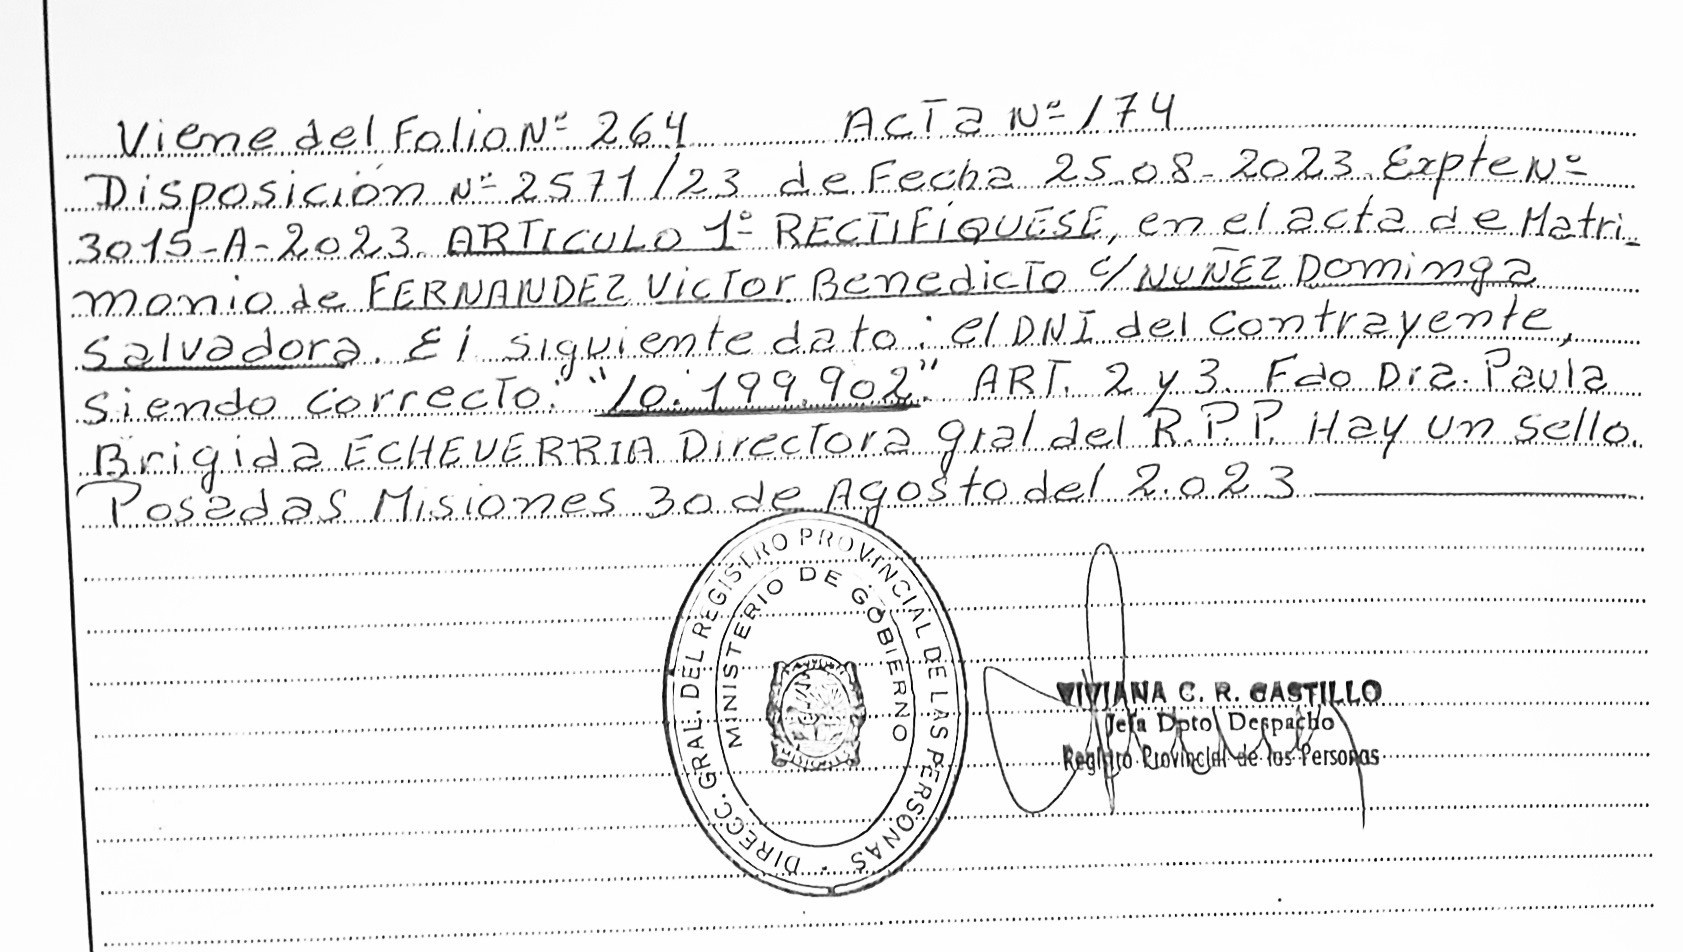 Viene del Folio Nº 264 Acta Nº 174
Disposición Nº 2571/23 de Fecha 25-08-2023. Expte Nº
3015-A-2023. ARTICULO 1º RECTIFÍQUESE, en el acta de Matri-
monio de FERNANDEZ Victor Benedicto c/ NUÑEZ Dominga
Salvadora. El siguiente dato: el DNI del contrayente,
siendo correcto: "10.199.902". ART. 2 y 3. Fdo Dra. Paula
Brigida ECHEVERRIA Directora gral del R.P.P. Hay un sello.
Posadas Misiones 30 de Agosto del 2.023
DIRECC. GRAL. DEL REGISTRO PROVINCIAL DE LAS PERSONAS
MINISTERIO DE GOBIERNO
VIVIANA C. R. CASTILLO
Jefa Dpto Despacho
Registro Provincial de las Personas